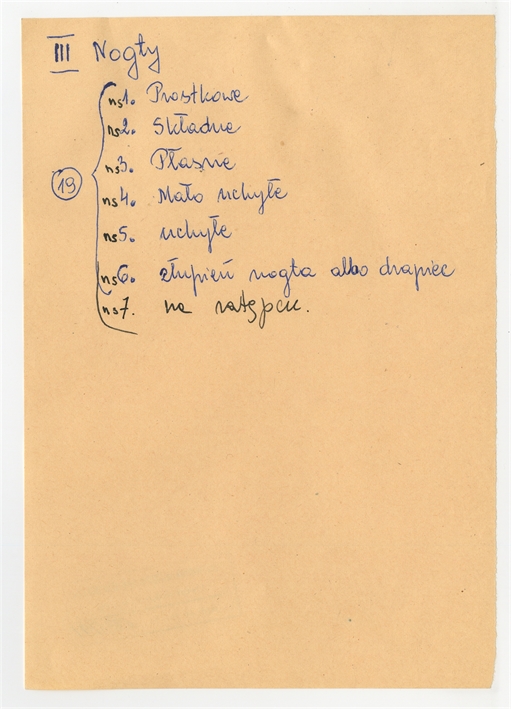 III Nogły
ns1. Prostkowe
ns2. Składne
ns3. Płasne
19
ns4. Mało uchyłe
ns5. uchyłe
ns6. złupień nogła albo drapiec
ns7. na